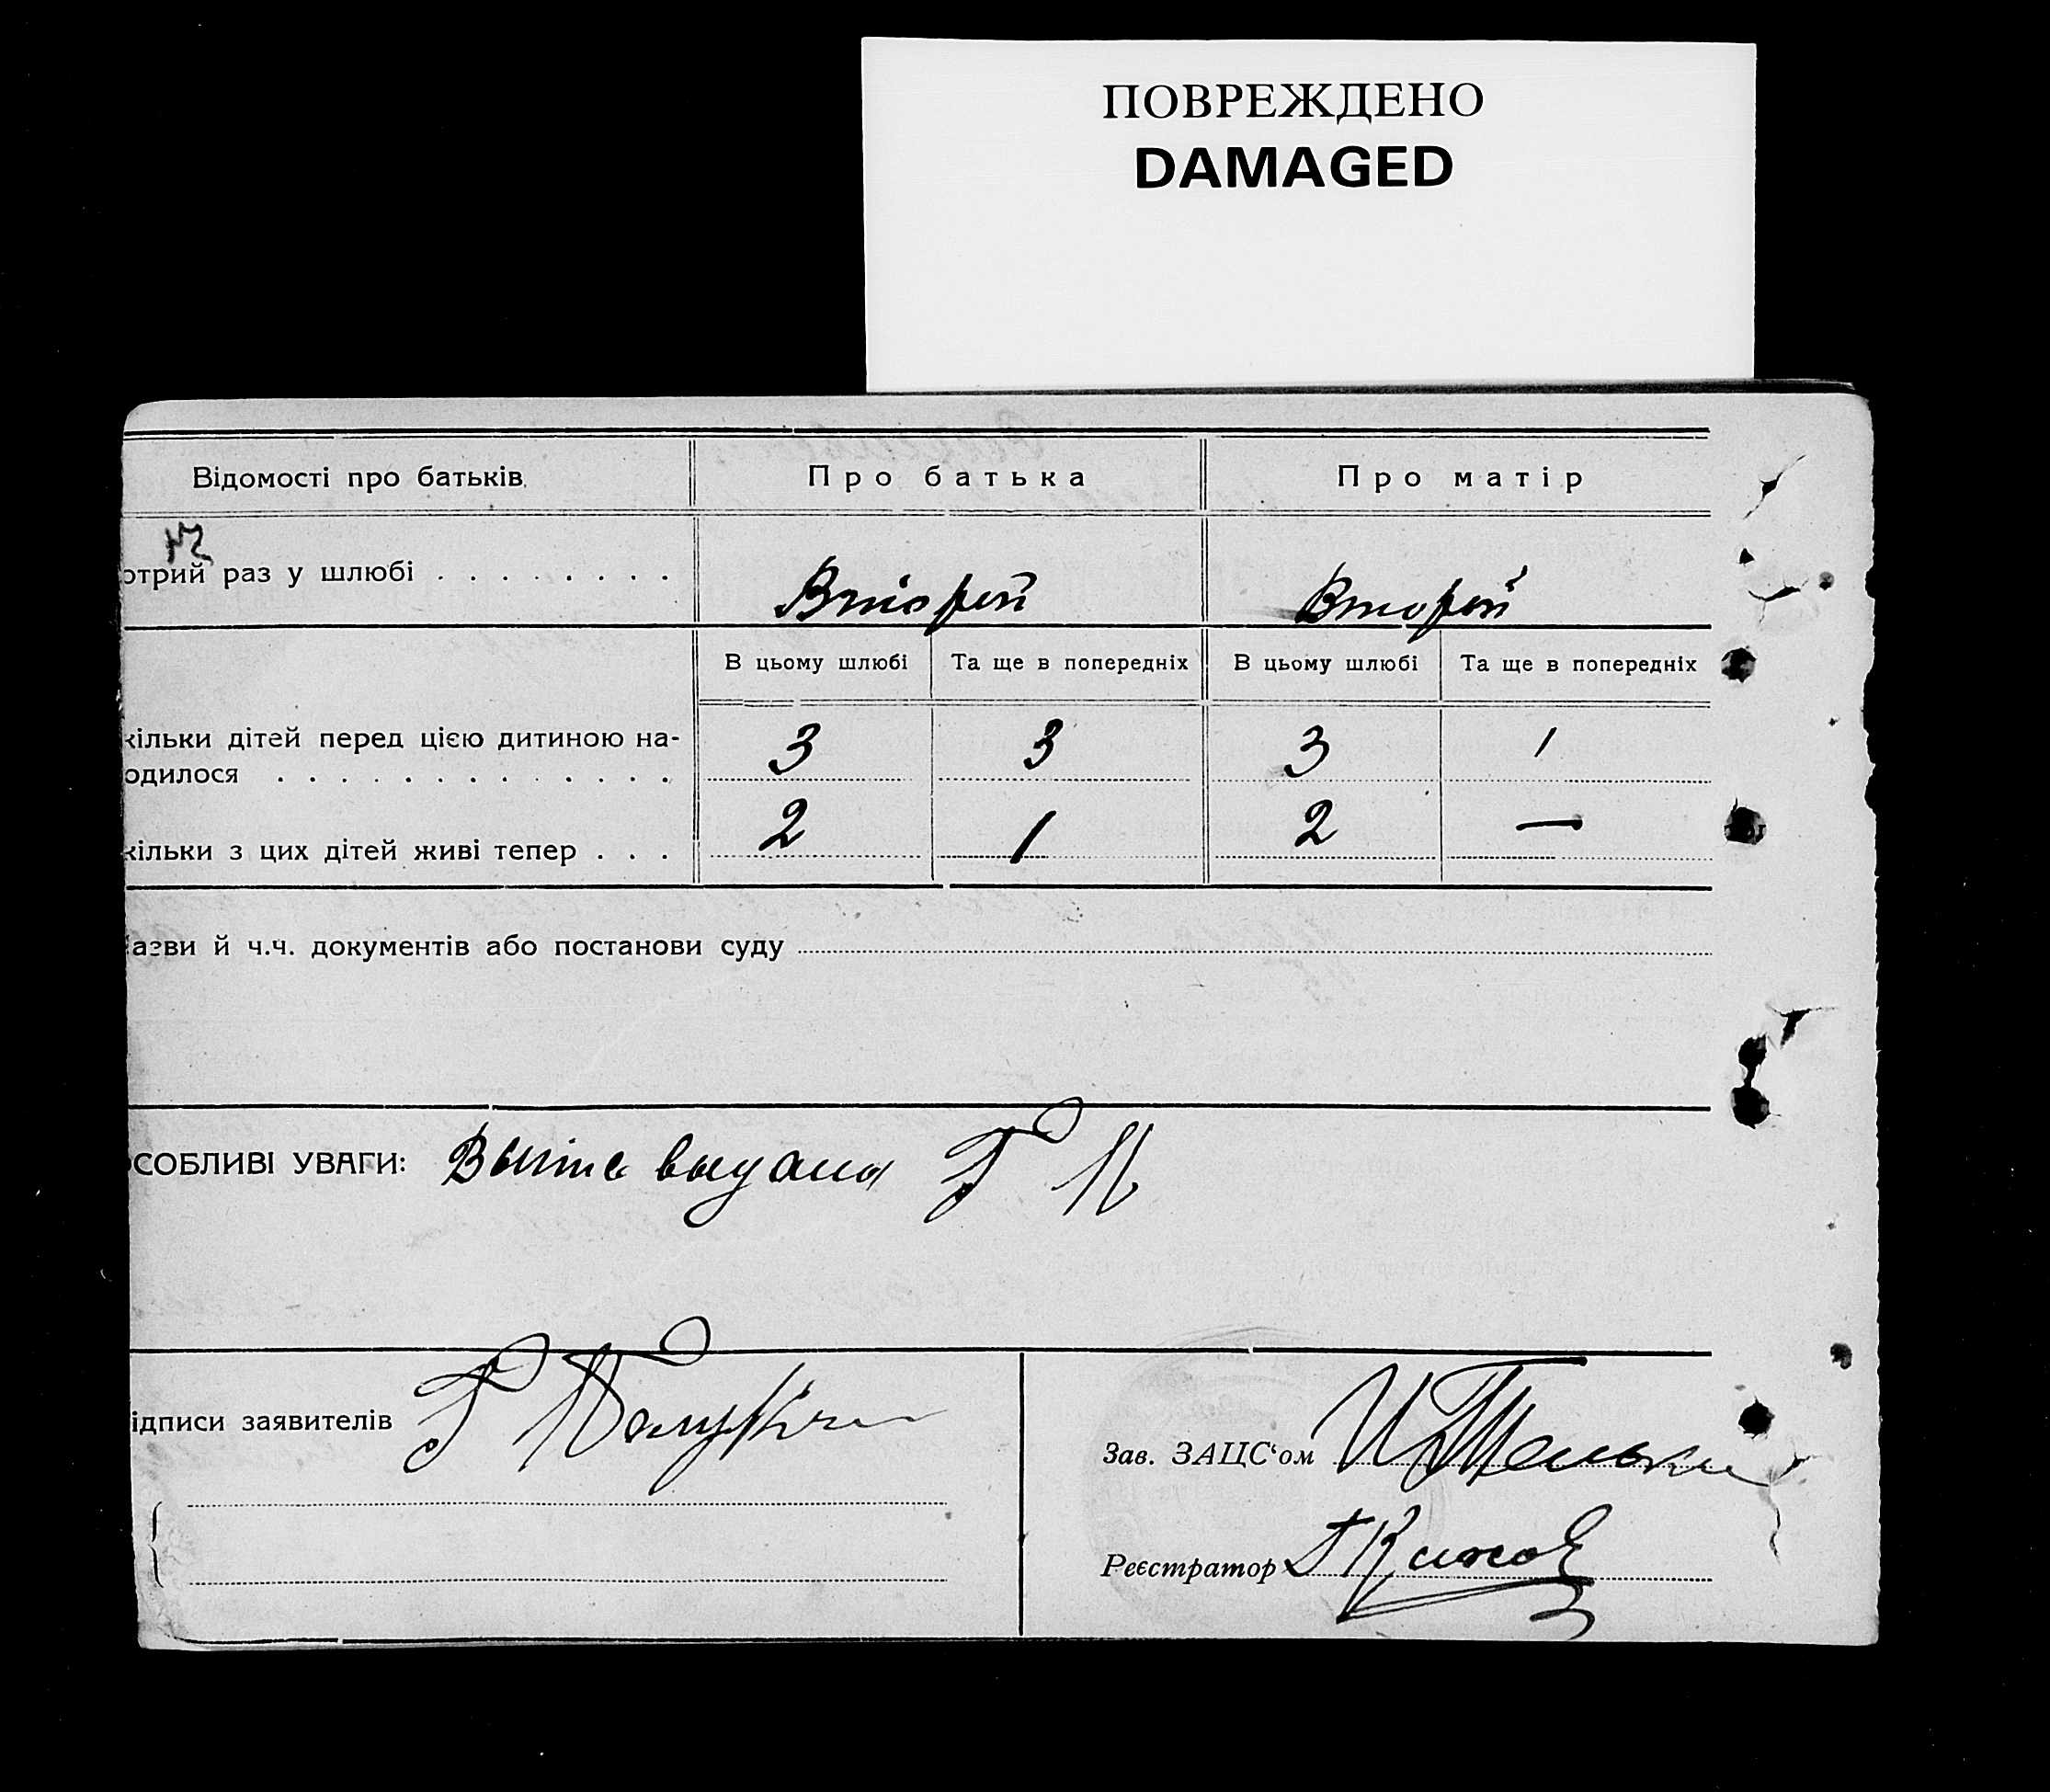 ПОВРЕЖДЕНО
DAMAGED
Відомості про батьків. Про батька Про матір
отрий раз у шлюбі . . . . . . . . Второй Второй
В цьому шлюбі Та ще в попередніх В цьому шлюбі Та ще в попередніх
кільки дітей перед цією дитиною на-
одилося . . . . . . . . . . . . . 3 3 3 1
кільки з цих дітей живі тепер . . . 2 1 2 —
азви й ч.ч. документів або постанови суду
СОБЛИВІ УВАГИ: выдана Г П
ідписи заявителів Г
Зав. ЗАЦС‘ом
Реєстратор